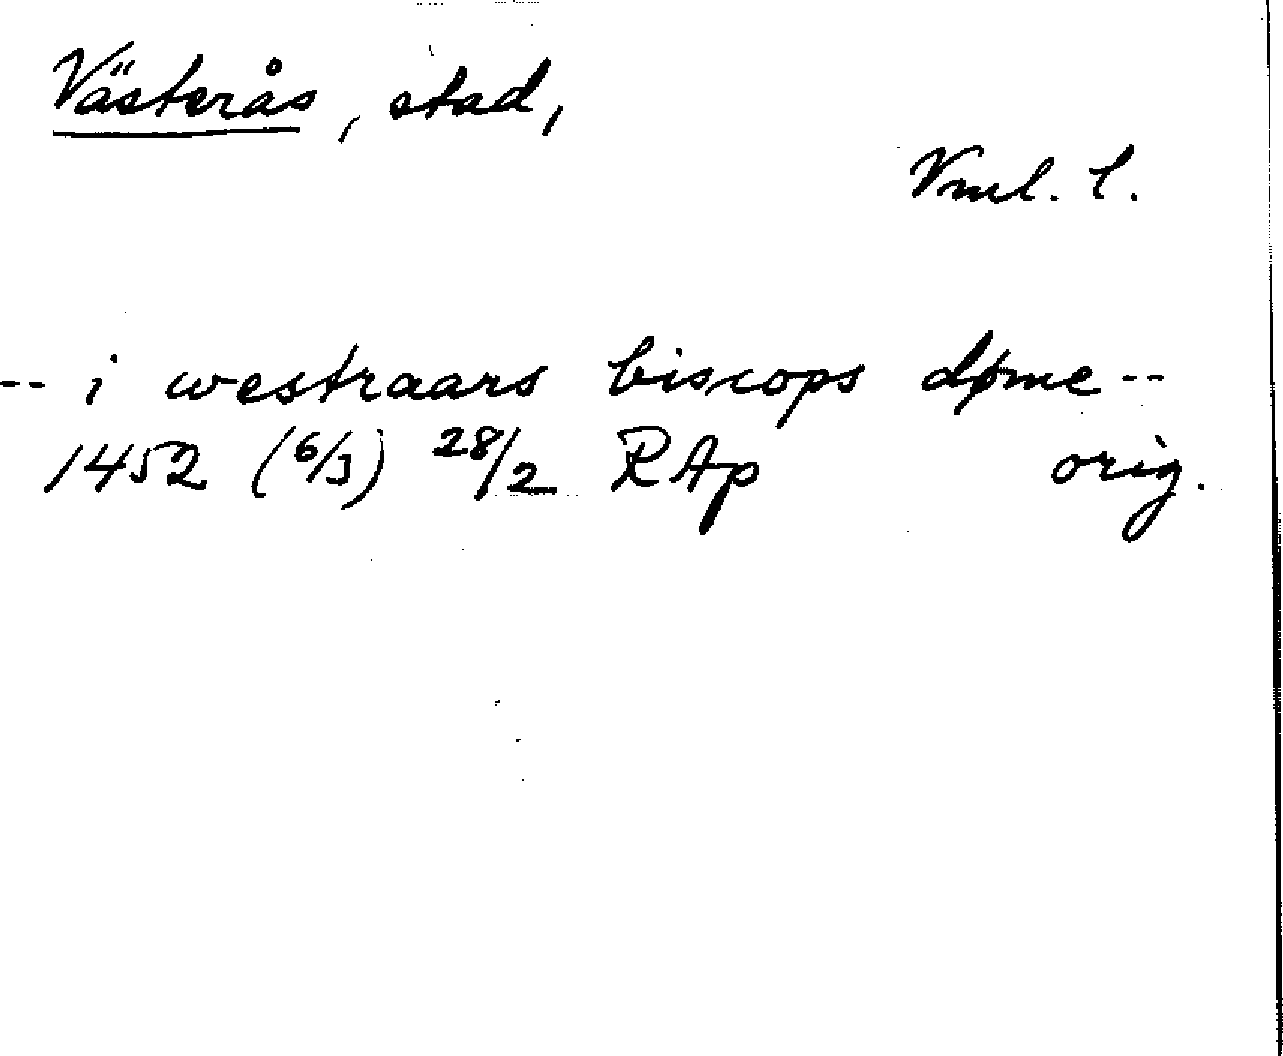 Västerås, stad,
Vml. l.
-- i westraars biscops døme --
1452 (6/3) 28/2 RAp orig.